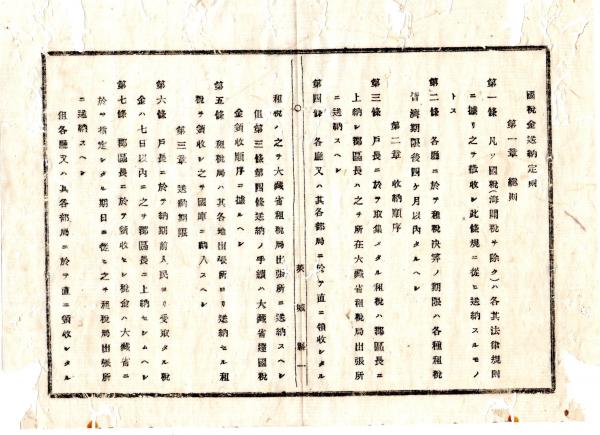 國税金送納定則
第一章 總則
第一條 凡ソ國税(海關税ヲ除ク)ハ各其法律規則
ニ據リ之ヲ徴收シ此條規ニ從ヒ送納スルモノ
トス
第二條 各廳ニ於テ租税決算ノ期限ハ各種租税
皆濟期限後四ケ月以内タルヘシ
第二章 收納順序
第三條 戸長ニ於テ取集メタル租税ハ郡區長ニ
上納シ郡區長ハ之ヲ所在大藏省租税局出張所
ニ送納スヘシ
第四條 各廳又ハ其各部局ニ於テ直ニ領收シタル
茨城縣
租税ノ之ヲ大藏省租税局出張所ニ送納スヘシ
但第三條第四條送納ノ手續ハ大藏省達國税
金領收順序ニ據ルヘシ
第五條 租税局ハ其各地出張所ヨリ送納セル租
税ヲ領收シ之ヲ國庫ニ納入スヘシ
第三章 送納期限
第六條 戸長ニ於テ納期前人民ヨリ受取タル税
金ハ七日以内ニ之ヲ郡區長ニ上納セシムヘシ
第七條 郡區長ニ於テ領收セシ税金ハ大藏省ニ
於テ指定シタル期日ニ從ヒ之ヲ租税局出張所
ニ送納スヘシ
但各廳又ハ其各部局ニ於テ直ニ領收シタル